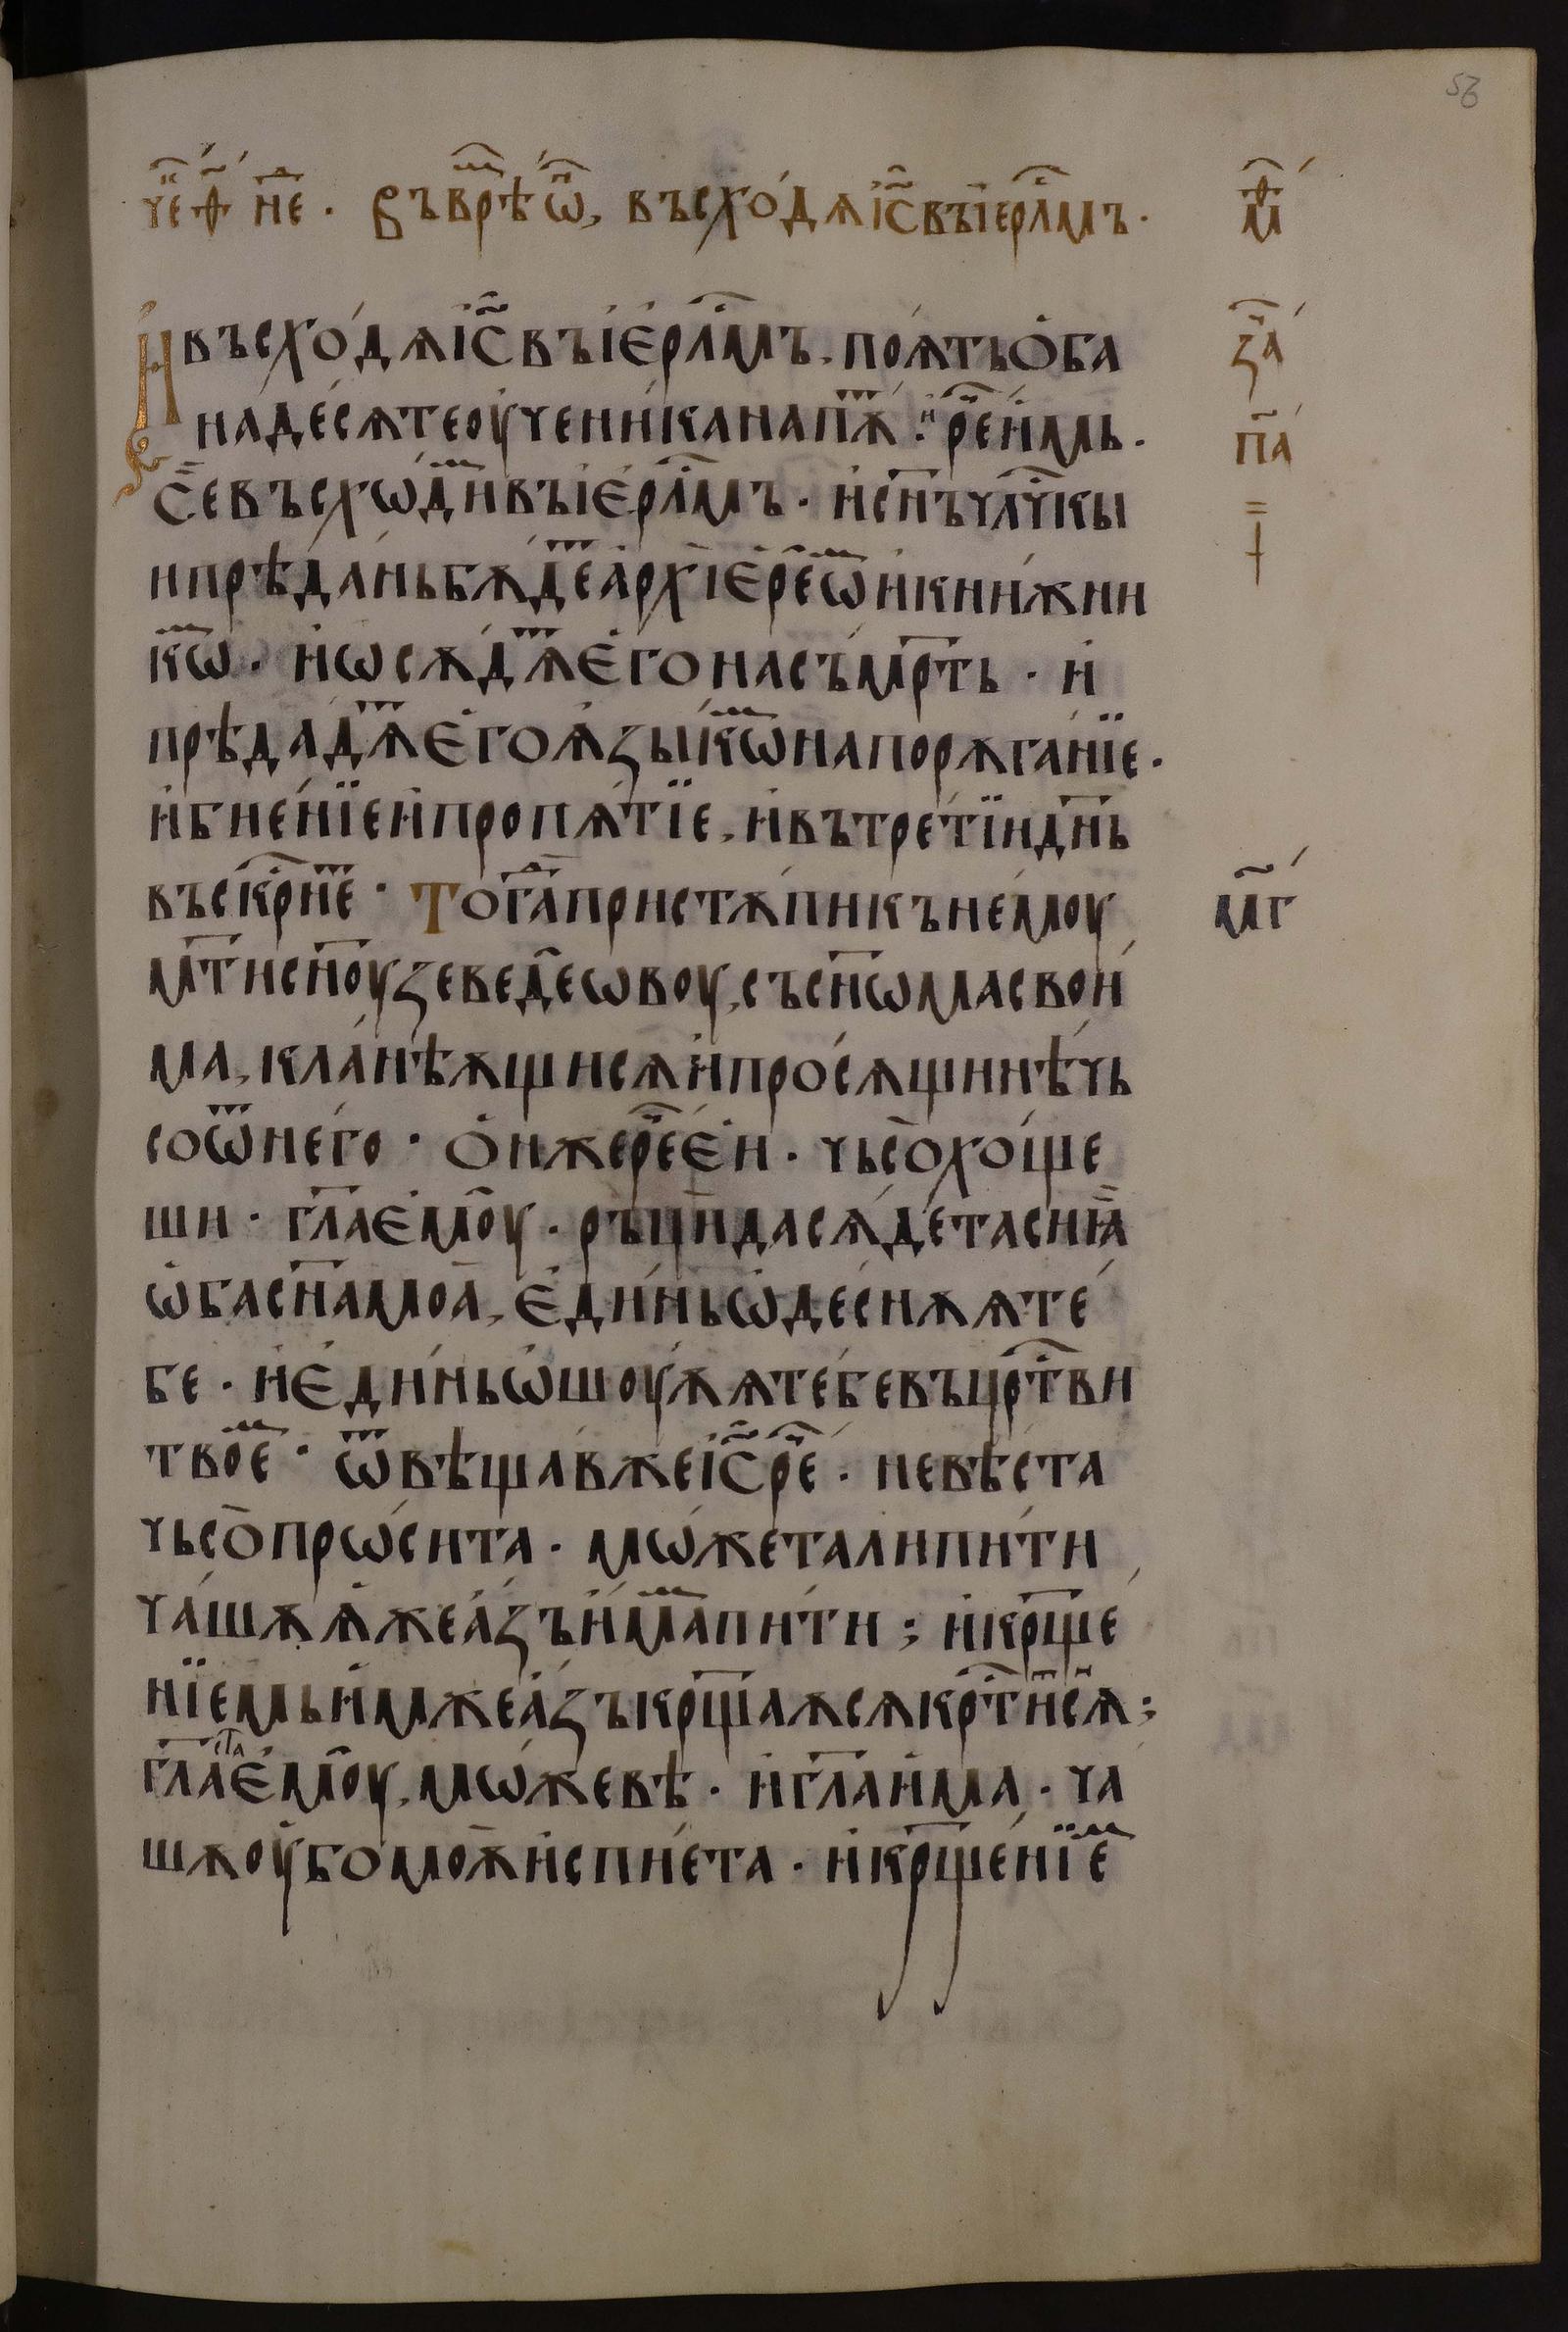 56
че҃ ⰪⰪ не҃ . въ врѣⷨ ѿ, въсходѧ і҃с въ іерⷭ҇лмъ ·
И въсходѧ і҃с въ іерⷭ҇лмъ, поѧтъ оба
на десѧте оученика на пѫⷮ . и реⷱ҇ имь .
Се въсхѡдиⷨ въ іерⷭ҇лмъ · и с҃нъ чл҃чкы
и прѣдань бѫдеⷮ архіереѡⷨ и книжни
кѡⷨ · и ѡсѫдѧⷮ его на съмр҃ть · и
прѣдадѧⷮ его ѧзыкѡⷨ на порѫганїе ·
и бїенїе и пропѧтїе, и въ третїи дн҃ь
въскрⷭ҇неⷮ · Тогⷣа пристѫпи къ немоу
мт҃и сн҃оу зеведеѡвоу, съ сн҃ѡма свои
ма, кланѣѫщи сѧ и просѧщи нѣчь
со ѿ него · Ѡн же реⷱ҇ еи · чьсо хоще
ши · гл҃а емоу · ръци да сѧдета сиа
ѡба сн҃а моа, единь ѡ деснѫѧ те
бе · и единь ѡ шоуѫѧ тебе въ црⷭ҇тви
твоеⷨ · ѿвѣщав же і҃с реⷱ҇ · не вѣста
чьсо прѡсита · мѡжета ли пити
чашѫ ѧже азъ имаⷨ пити ; и кр҃ще
нїемь имже азъ кр҃щаѫ сѧ крⷭ҇ти сѧ ;
гл҃аста емоу, мѡжевѣ · и гл҃а има · ча
шѫ оубо моѫ испиета · и кр҃щенїеⷨ
м҃
за҃
па҃
м҃г